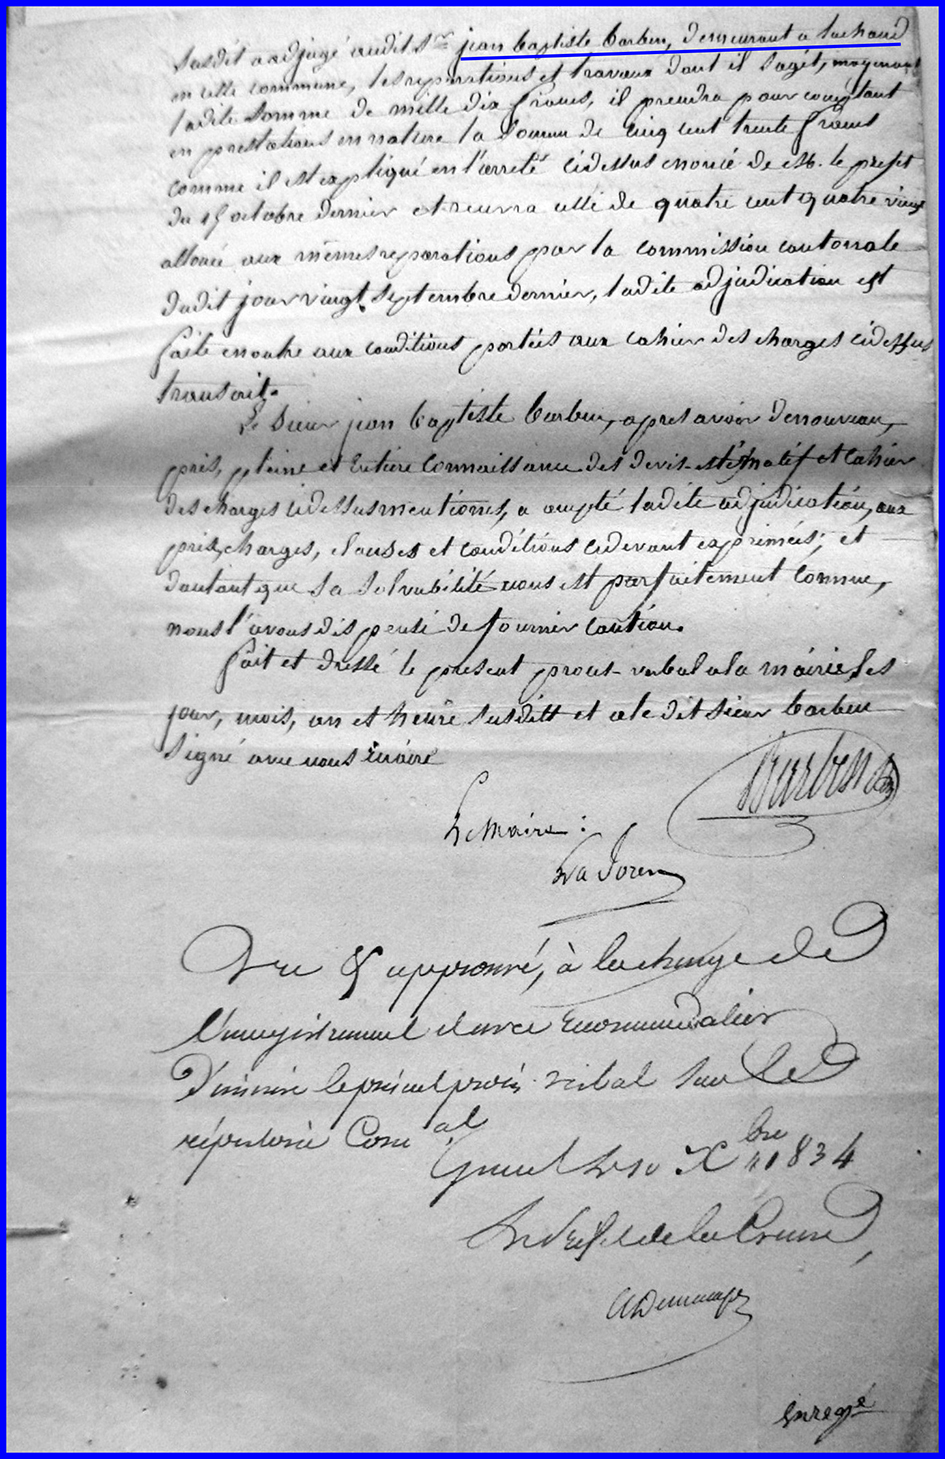 susdit a adjugé audit Sr jean baptiste barben, demeurant a Lachaud
en cette commune, les reparations et travaux dont il sagit, moyennant
ladite Somme de mille dix francs, il prendra pour comptant
en prestations en nature la Somme de cinq cent trente francs
comme il est expliqué en l'arreté cidessus enoncé de M. le prefet
du 15 octobre dernier et recevra celle de quatre cent quatre vingt
allouée aux mêmes reparations par la commission cantonale
dudit jour vingt septembre dernier, ladite adjudication est
faite en outre aux conditions portées aux cahier des charges cidessus
transcrit.
Le Sieur jean baptiste barben, apres avoir denouveau,
pris, pleine et Entiere Connaissance des devis estimatif et Cahier
des charges cidessus mentionnés, a accepté ladite adjudication, aux
prix, charges, clauses et conditions cidevant exprimées; et
dautant que sa Solvabilité nous est parfaitement Connue,
nous l'avons dispensé de fournir caution.
fait et dressé le present procés-verbal a la mairie les
jour, mois, an et heure susditt et a le dit sieur barben
signé avec nous maire
Barben
Le Maire :
Vu & approuvé, à la charge de
l'enregistrement et avec recommandation
d'inscrire le présent procès verbal sur le
répertoire Com al
Gueret le 10 Xbre 1834
Le Préfet de la Creuse,
Enregé